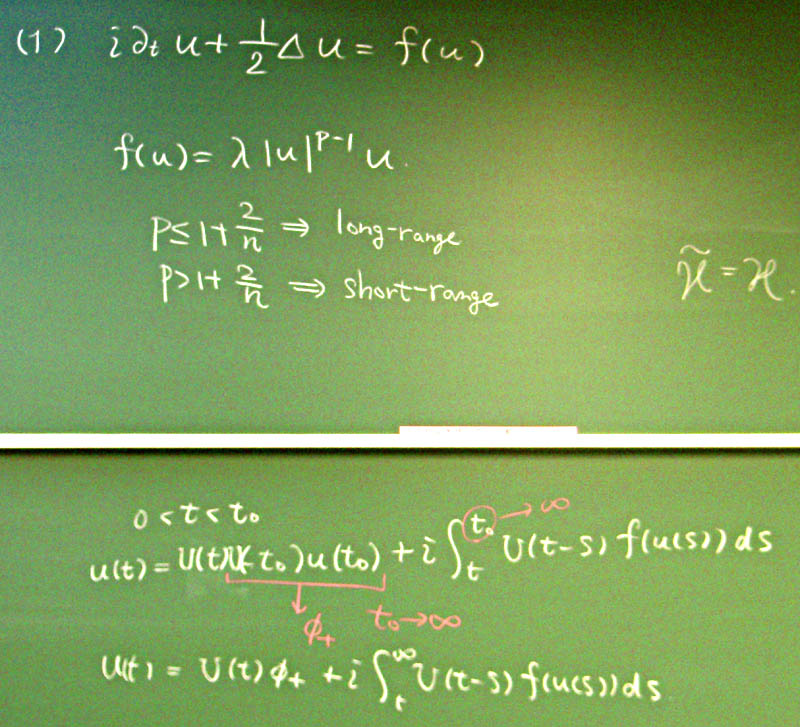 (1) i∂ₜu + ½Δu = f(u)
f(u) = λ|u|^{p-1}u.
p ≤ 1 + 2/n ⇒ long-range
p > 1 + 2/n ⇒ short-range
ℋ̃ = ℋ.
0 < t < t₀
u(t) = U(t)U(-t₀)u(t₀) + i∫ₜ^{t₀} U(t-s) f(u(s)) ds
→ ∞
ϕ₊ t₀→∞
u(t) = U(t)ϕ₊ + i∫ₜ^∞ U(t-s) f(u(s)) ds